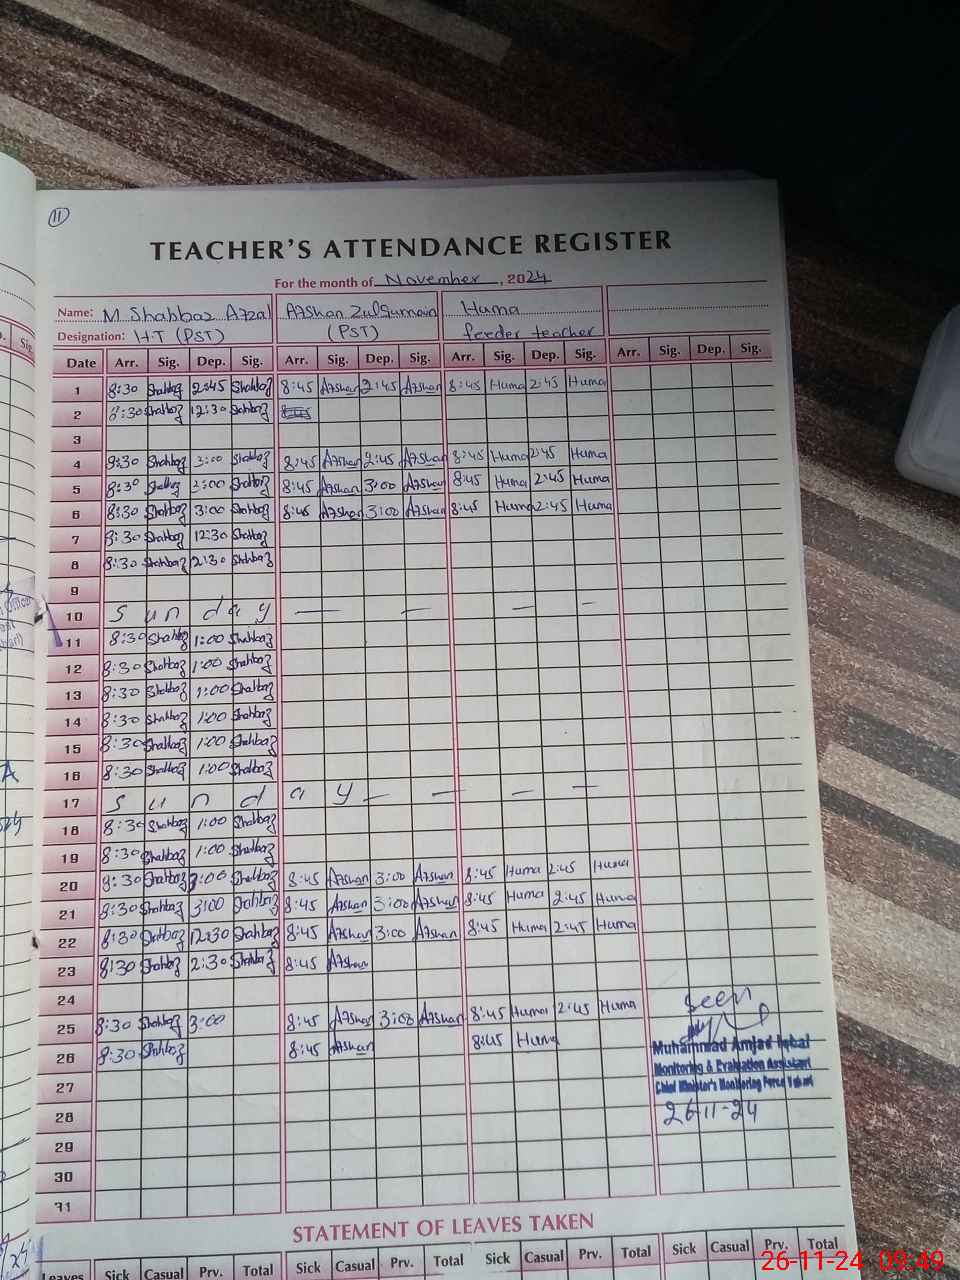 11
TEACHER'S ATTENDANCE REGISTER
For the month of November, 2024
Name: M Shahbaz Afzal Afshan Zulqurnain Huma
Designation: H-T (PST) (PST) feeder teacher
Date Arr. Sig. Dep. Sig. Arr. Sig. Dep. Sig. Arr. Sig. Dep. Sig. Arr. Sig. Dep. Sig.
1 8:30 Shahbaz 2:45 Shahbaz 8:45 Afshan 2:45 Afshan 8:45 Huma 2:45 Huma
2 8:30 Shahbaz 12:30 Shahbaz
3
4 8:30 Shahbaz 3:00 Shahbaz 8:45 Afshan 2:45 Afshan 8:45 Huma 2:45 Huma
5 8:30 Shahbaz 3:00 Shahbaz 8:45 Afshan 3:00 Afshan 8:45 Huma 2:45 Huma
6 8:30 Shahbaz 3:00 Shahbaz 8:45 Afshan 3:00 Afshan 8:45 Huma 2:45 Huma
7 8:30 Shahbaz 12:30 Shahbaz
8 8:30 Shahbaz 2:30 Shahbaz
9
10 Sunday — — — —
11 8:30 Shahbaz 1:00 Shahbaz
12 8:30 Shahbaz 1:00 Shahbaz
13 8:30 Shahbaz 1:00 Shahbaz
14 8:30 Shahbaz 1:00 Shahbaz
15 8:30 Shahbaz 1:00 Shahbaz
16 8:30 Shahbaz 1:00 Shahbaz
17 Sunday — — — —
18 8:30 Shahbaz 1:00 Shahbaz
19 8:30 Shahbaz 1:00 Shahbaz
20 8:30 Shahbaz 3:00 Shahbaz 8:45 Afshan 3:00 Afshan 8:45 Huma 2:45 Huma
21 8:30 Shahbaz 3:00 Shahbaz 8:45 Afshan 3:00 Afshan 8:45 Huma 2:45 Huma
22 8:30 Shahbaz 12:30 Shahbaz 8:45 Afshan 3:00 Afshan 8:45 Huma 2:45 Huma
23 8:30 Shahbaz 2:30 Shahbaz 8:45 Afshan
24
25 8:30 Shahbaz 3:00 8:45 Afshan 3:00 Afshan 8:45 Huma 2:45 Huma
26 8:30 Shahbaz 8:45 Afshan 8:45 Huma
27
28
29
30
31
Seen
Muhammad Amjad Iqbal
Monitoring & Evaluation Assistant
Chief Minister's Monitoring Force
26-11-24
STATEMENT OF LEAVES TAKEN
Leaves Sick Casual Prv. Total Sick Casual Prv. Total Sick Casual Prv. Total Sick Casual Prv. Total
26-11-24 09:49